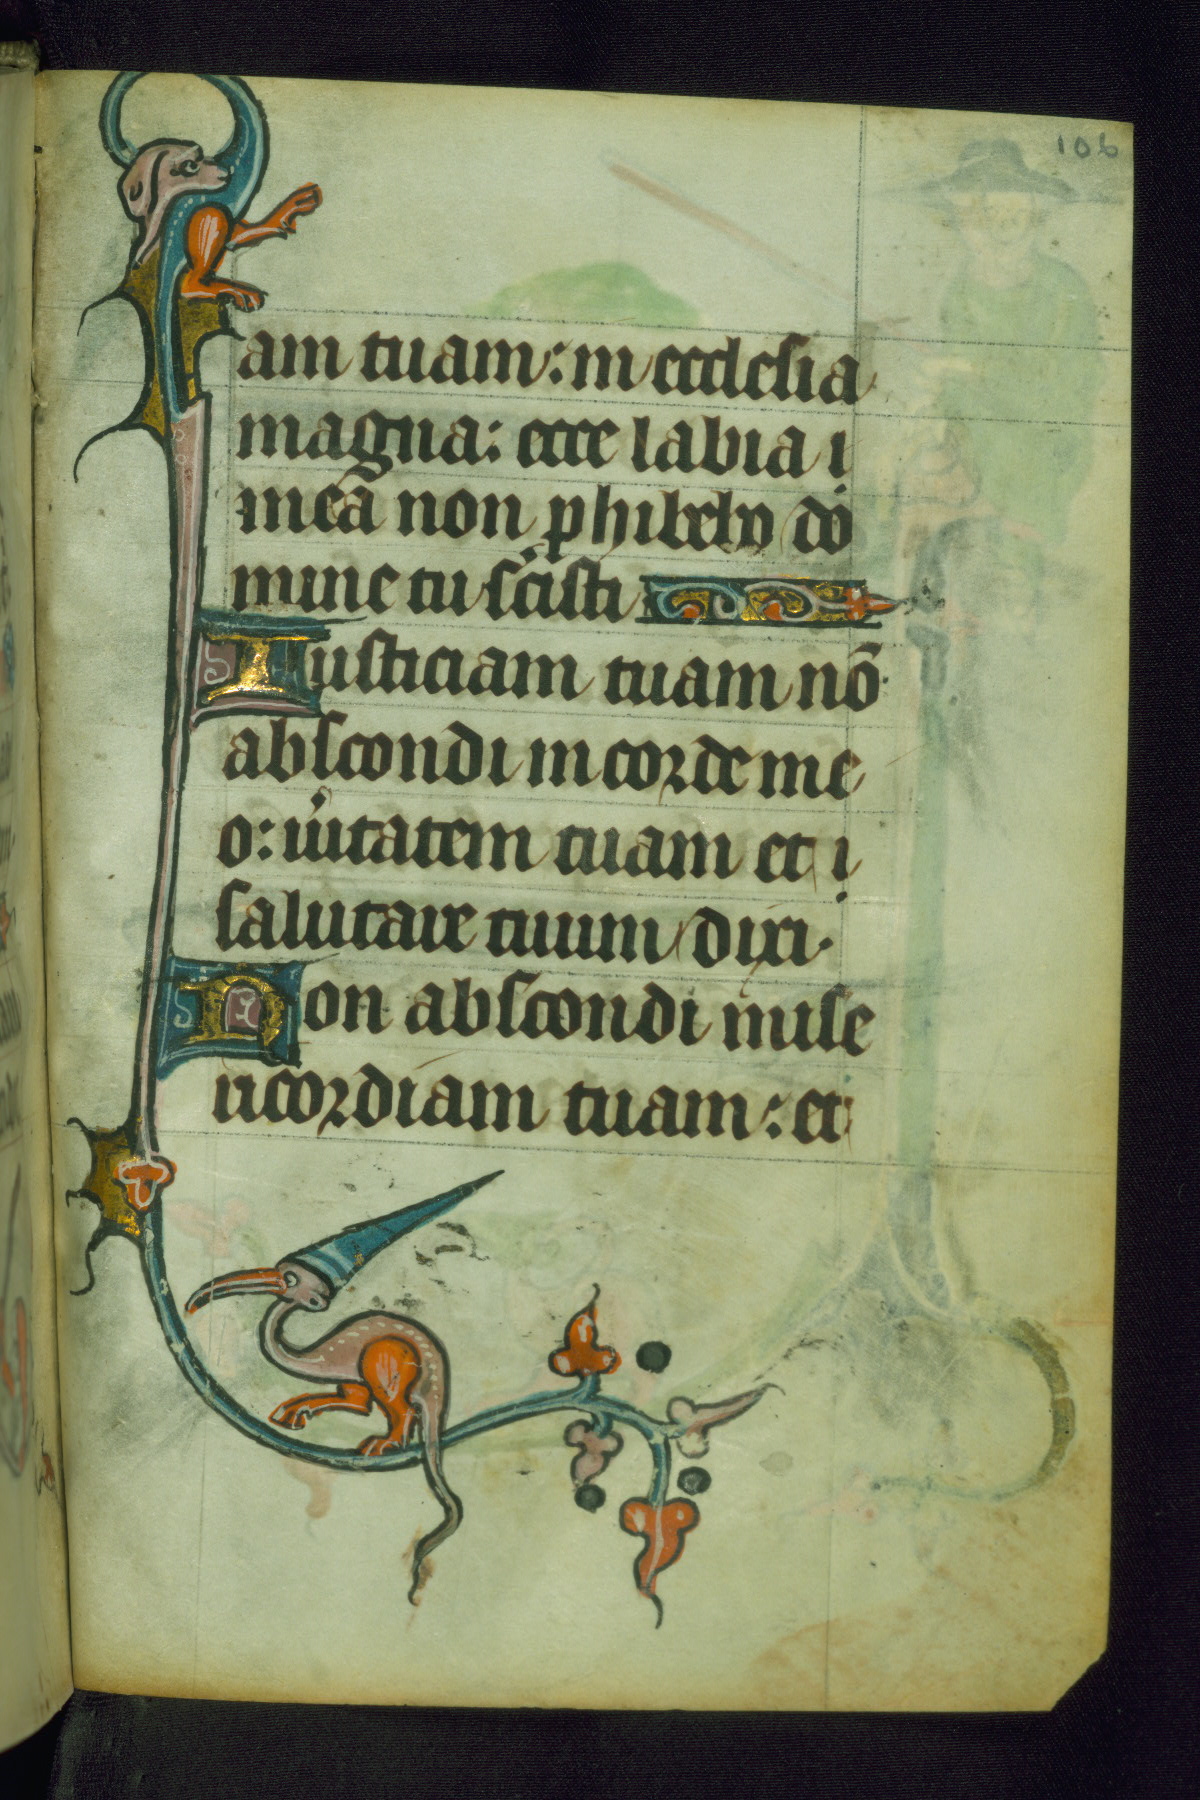 106
am tuam: in ecclesia
magna: ecce labia i
mea non ꝓhibebo do
mine tu scisti
Iusticiam tuam nō
abscondi in corde me
o: uitatem tuam et i
salutare tuum dixi.
Non abscondi mise
ricordiam tuam: et